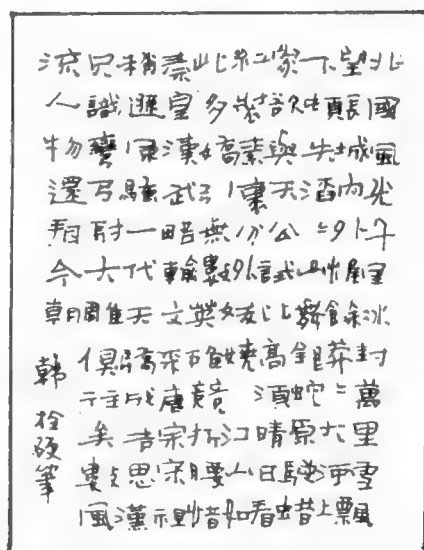 北國風光千里冰封萬里雪飄
望長城內外惟餘莽〻大河上
下頓失滔〻山舞銀蛇原馳蠟
象欲與天公試比高須晴日看
紅裝素裹分外妖嬈 江山如
此多嬌引無數英雄競折腰惜
秦皇漢武略輸文采唐宗宋祖
稍遜風騷一代天驕成吉思漢
只識彎弓射大雕俱往矣數風
流人物還看今朝
韓拴硬筆